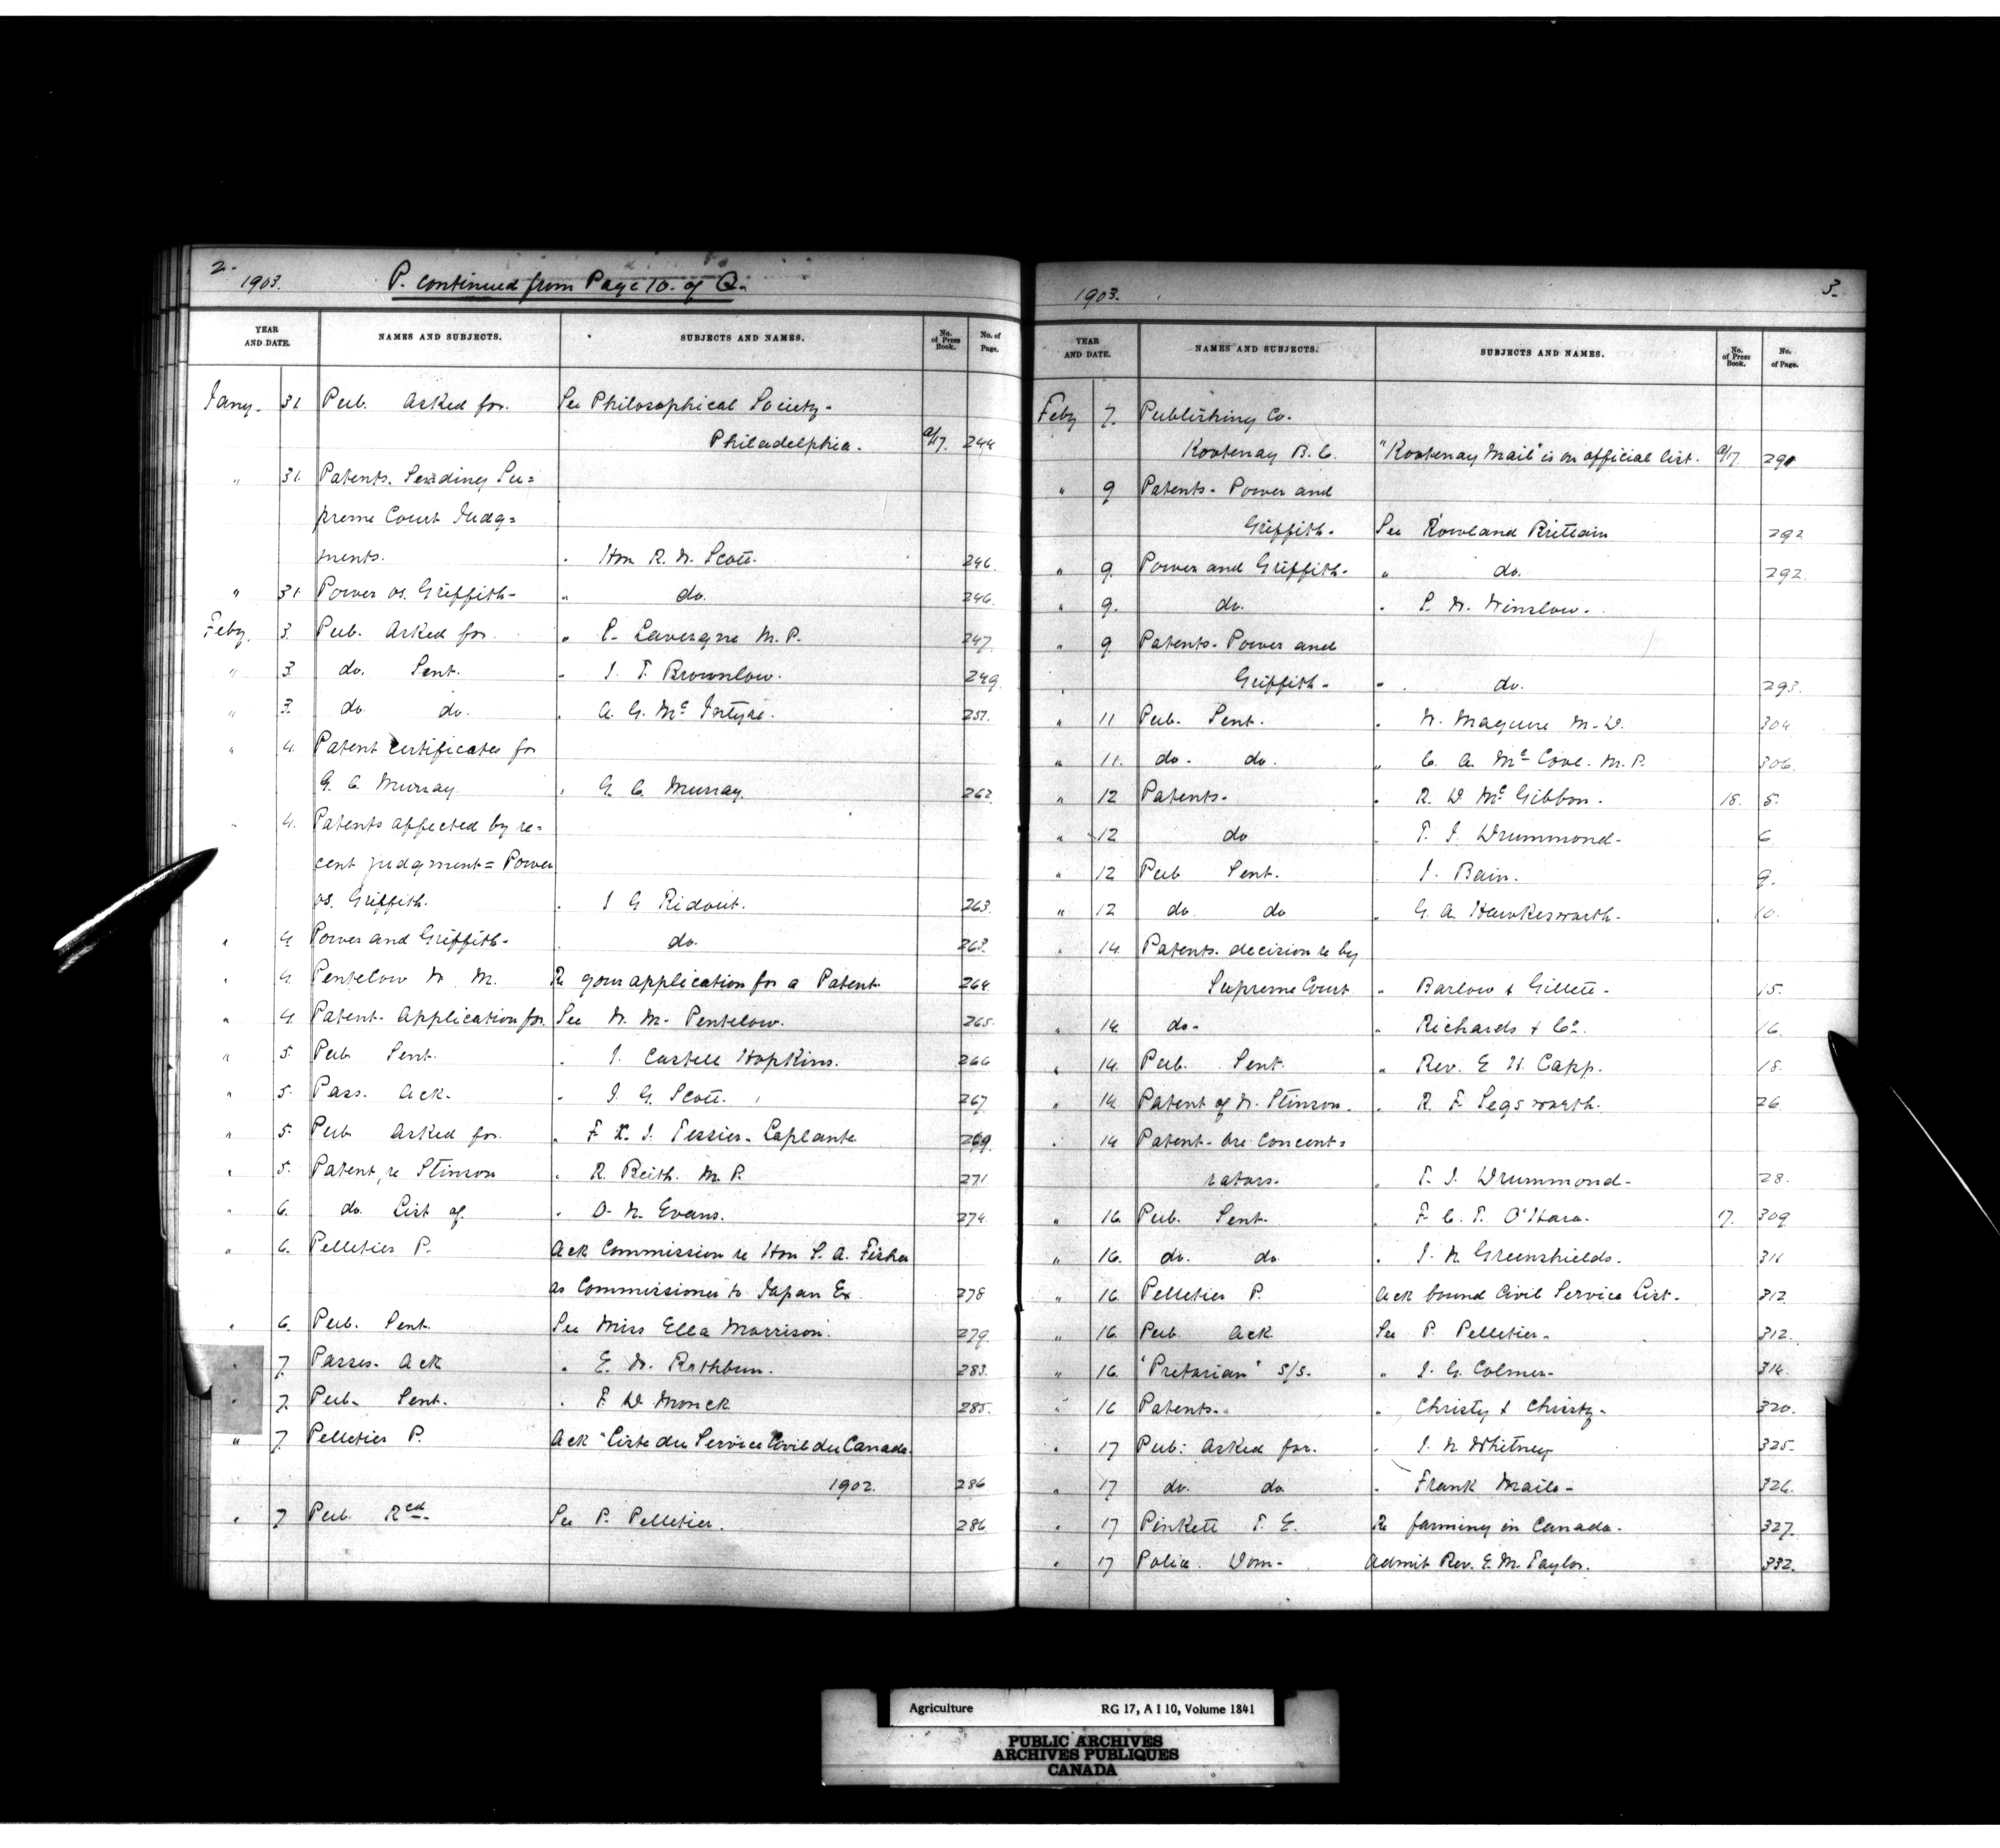 2.
1903. P. continued from Page 10. of Q.
YEAR AND DATE. NAMES AND SUBJECTS. SUBJECTS AND NAMES. No. of Press Book. No. of Page.
Jany. 31 Pub. Asked for. See Philosophical Society-
Philadelphia. a/17. 244
" 31. Patents. Sending Su=
preme Court Judg=
ments. " Hon R. W. Scott. 246.
" 31. Power vs. Griffith- " do. 246.
Feby. 3. Pub. Asked for. " L. Lavergne M.P. 247.
" 3. do. Sent. " J. T. Brownlow. 249.
" 3. do do. " A. G. Mc Intyre. 251.
" 4. Patent certificates for
G. C. Murray. " G. C. Murray. 262.
" 4. Patents affected by re=
cent judgment = Power
vs. Griffith. " J G Ridout. 263.
" 4. Power and Griffith- " do. 263.
" 4. Pentelow W. M. Re your application for a Patent. 264.
" 4. Patent- Application for See W. M- Pentelow. 265.
" 5. Pub Sent. " J. Castell Hopkins. 266
" 5. Pass. Ack. " J. G. Scott. 267
" 5. Pub Asked for. " F. X. J. Tessier-Laplante 269.
" 5. Patent, re Stinson " R. Beith. M.P. 271
" 6. do. List of. " O. N. Evans. 274.
" 6. Pelletier P. Ack Commission re Hon S. A. Fisher
as Commissioner to Japan Ex. 278
" 6. Pub. Sent. See Miss Ella Morrison. 279.
" 7. Passes- Ack " E. W. Rathbun. 283.
" 7. Pub- Sent. " F. D Monck 285.
" 7. Pelletier P. Ack "Liste du Service Civil du Canada.
1902. 286
" 7 Pub. Rcd. See P. Pelletier. 286
1903. 3.
YEAR AND DATE. NAMES AND SUBJECTS. SUBJECTS AND NAMES. No. of Press Book. No. of Page.
Feby 7. Publishing Co.
Kootenay B.C. "Kootenay Mail" is on official list. a/17. 291
" 9 Patents- Power and
Griffith- See Rowland Brittain 292
" 9. Power and Griffith- " do. 292.
" 9. do. " P. W. Winslow.
" 9 Patents- Power and
Griffith- " do. 293.
" 11 Pub. Sent. " W. Maguire M.D. 304
" 11. do. do. " C. A. Mc Cool. M.P. 306.
" 12 Patents- " R. D Mc Gibbon. 18. 5.
" 12 do " T. J. Drummond- 6
" 12 Pub Sent. " J. Bain. 9.
" 12 do do " G. A. Hawkesworth- 10.
" 14 Patents. decision re by
Supreme Court " Barlow & Gillett- 15.
" 14. do- " Richards & Co. 16.
" 14. Pub. Sent. " Rev. E H. Capp. 18.
" 14 Patent of W. Stinson. " R. F. Segsworth. 26
" 14 Patent- Ore Concent=
rators. " T. J. Drummond- 28.
" 16 Pub. Sent. " F. C. T. O'Hara. 17. 309
" 16. do. do. " J. N. Greenshields. 311
" 16. Pelletier P. Ack bound Civil Service List. 312.
" 16. Pub. Ack See P. Pelletier- 312.
" 16. "Pretorian" S/S. " J. G. Colmer- 314.
" 16 Patents. " Christy & Christy- 320.
" 17 Pub: Asked for. " J. N. Whitney 325.
" 17 do. do " Frank Maile- 326.
" 17 Pinkett T. E. Re farming in Canada. 327.
" 17 Police. Dom- Admit Rev. E. M. Taylor. 332.
Agriculture RG 17, A I 10, Volume 1841
PUBLIC ARCHIVES
ARCHIVES PUBLIQUES
CANADA